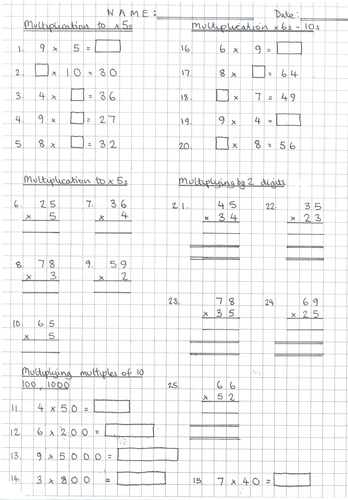 NAME: Date:
Multiplication to x5s
1. 9 x 5 = □
2. □ x 10 = 30
3. 4 x □ = 36
4. 9 x □ = 27
5. 8 x □ = 32
Multiplication x 6s - 10s
16. 6 x 9 = □
17. 8 x □ = 64
18. □ x 7 = 49
19. 9 x 4 = □
20. □ x 8 = 56
Multiplication to x 5s
6. 25
x 5
7. 36
x 4
8. 78
x 3
9. 59
x 2
10. 65
x 5
Multiplying by 2 digits
21. 45
x 34
22. 35
x 23
23. 78
x 35
24. 69
x 25
25. 66
x 52
Multiplying multiples of 10
100, 1000
11. 4 x 50 = □
12. 6 x 200 = □
13. 9 x 5000 = □
14. 3 x 800 = □
15. 7 x 40 = □